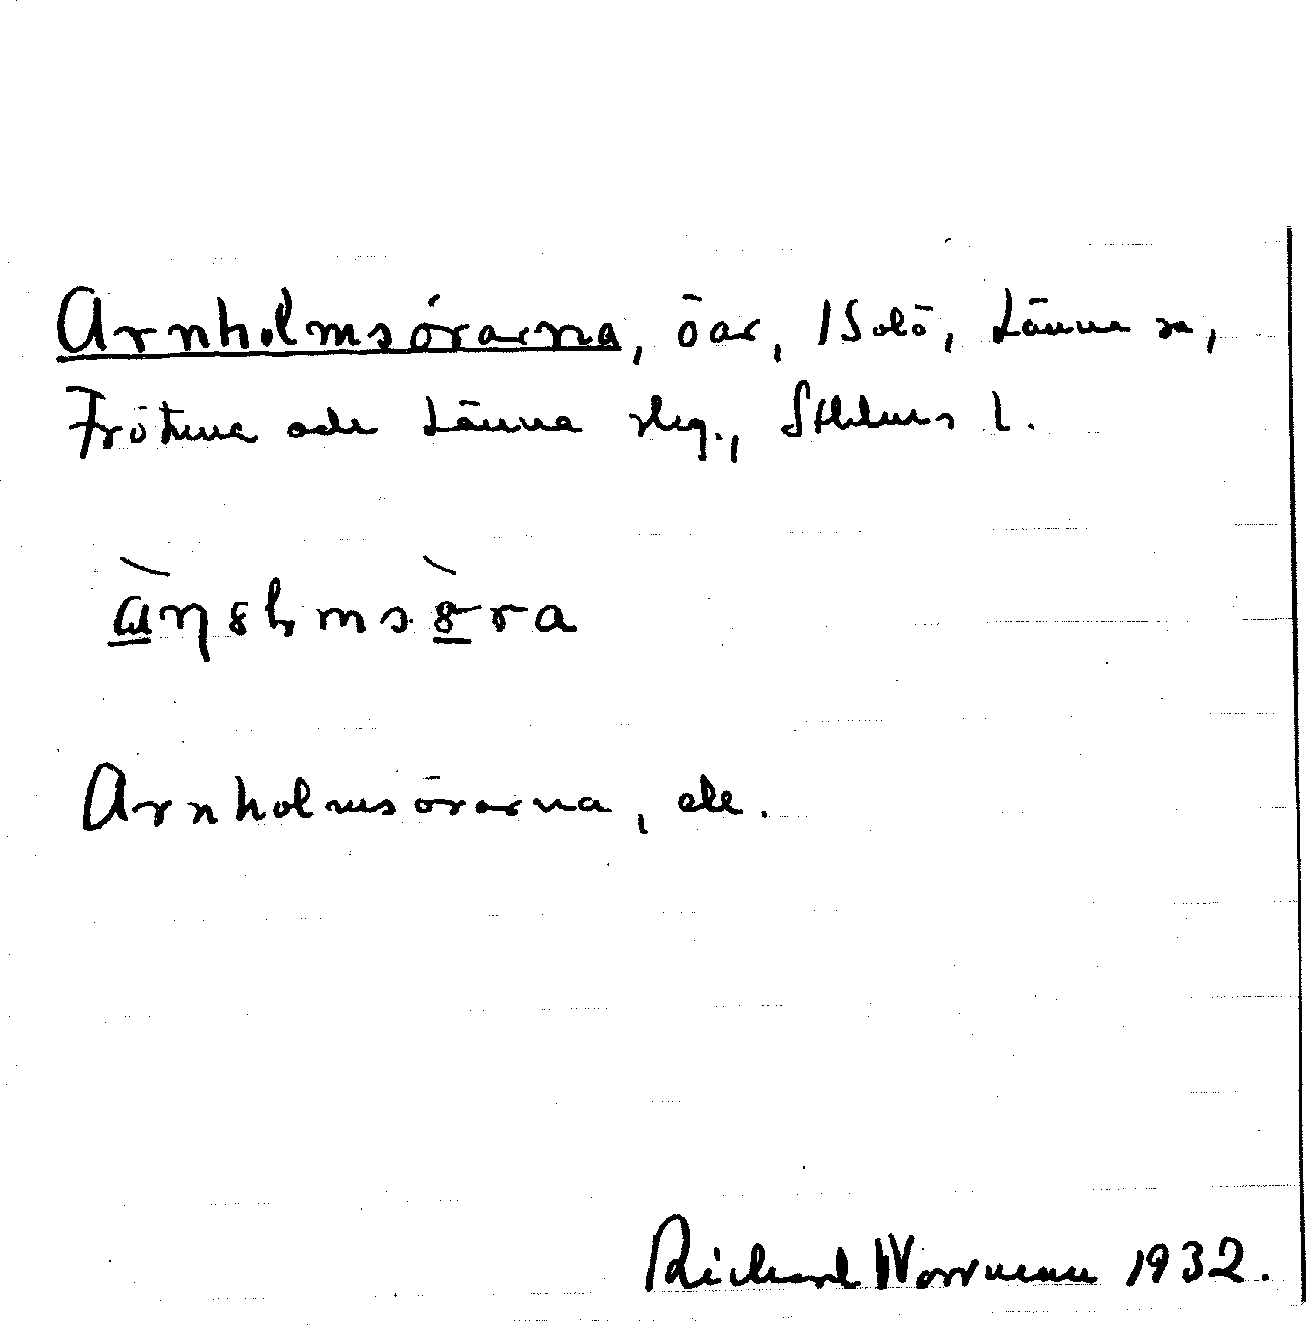 Arnholmsörarna, öar, Isolö, Länna sn,
Frötuna och Länna slg., Sthlms l.
Arnholmsörarna, ek.
Richard Norrman 1932.